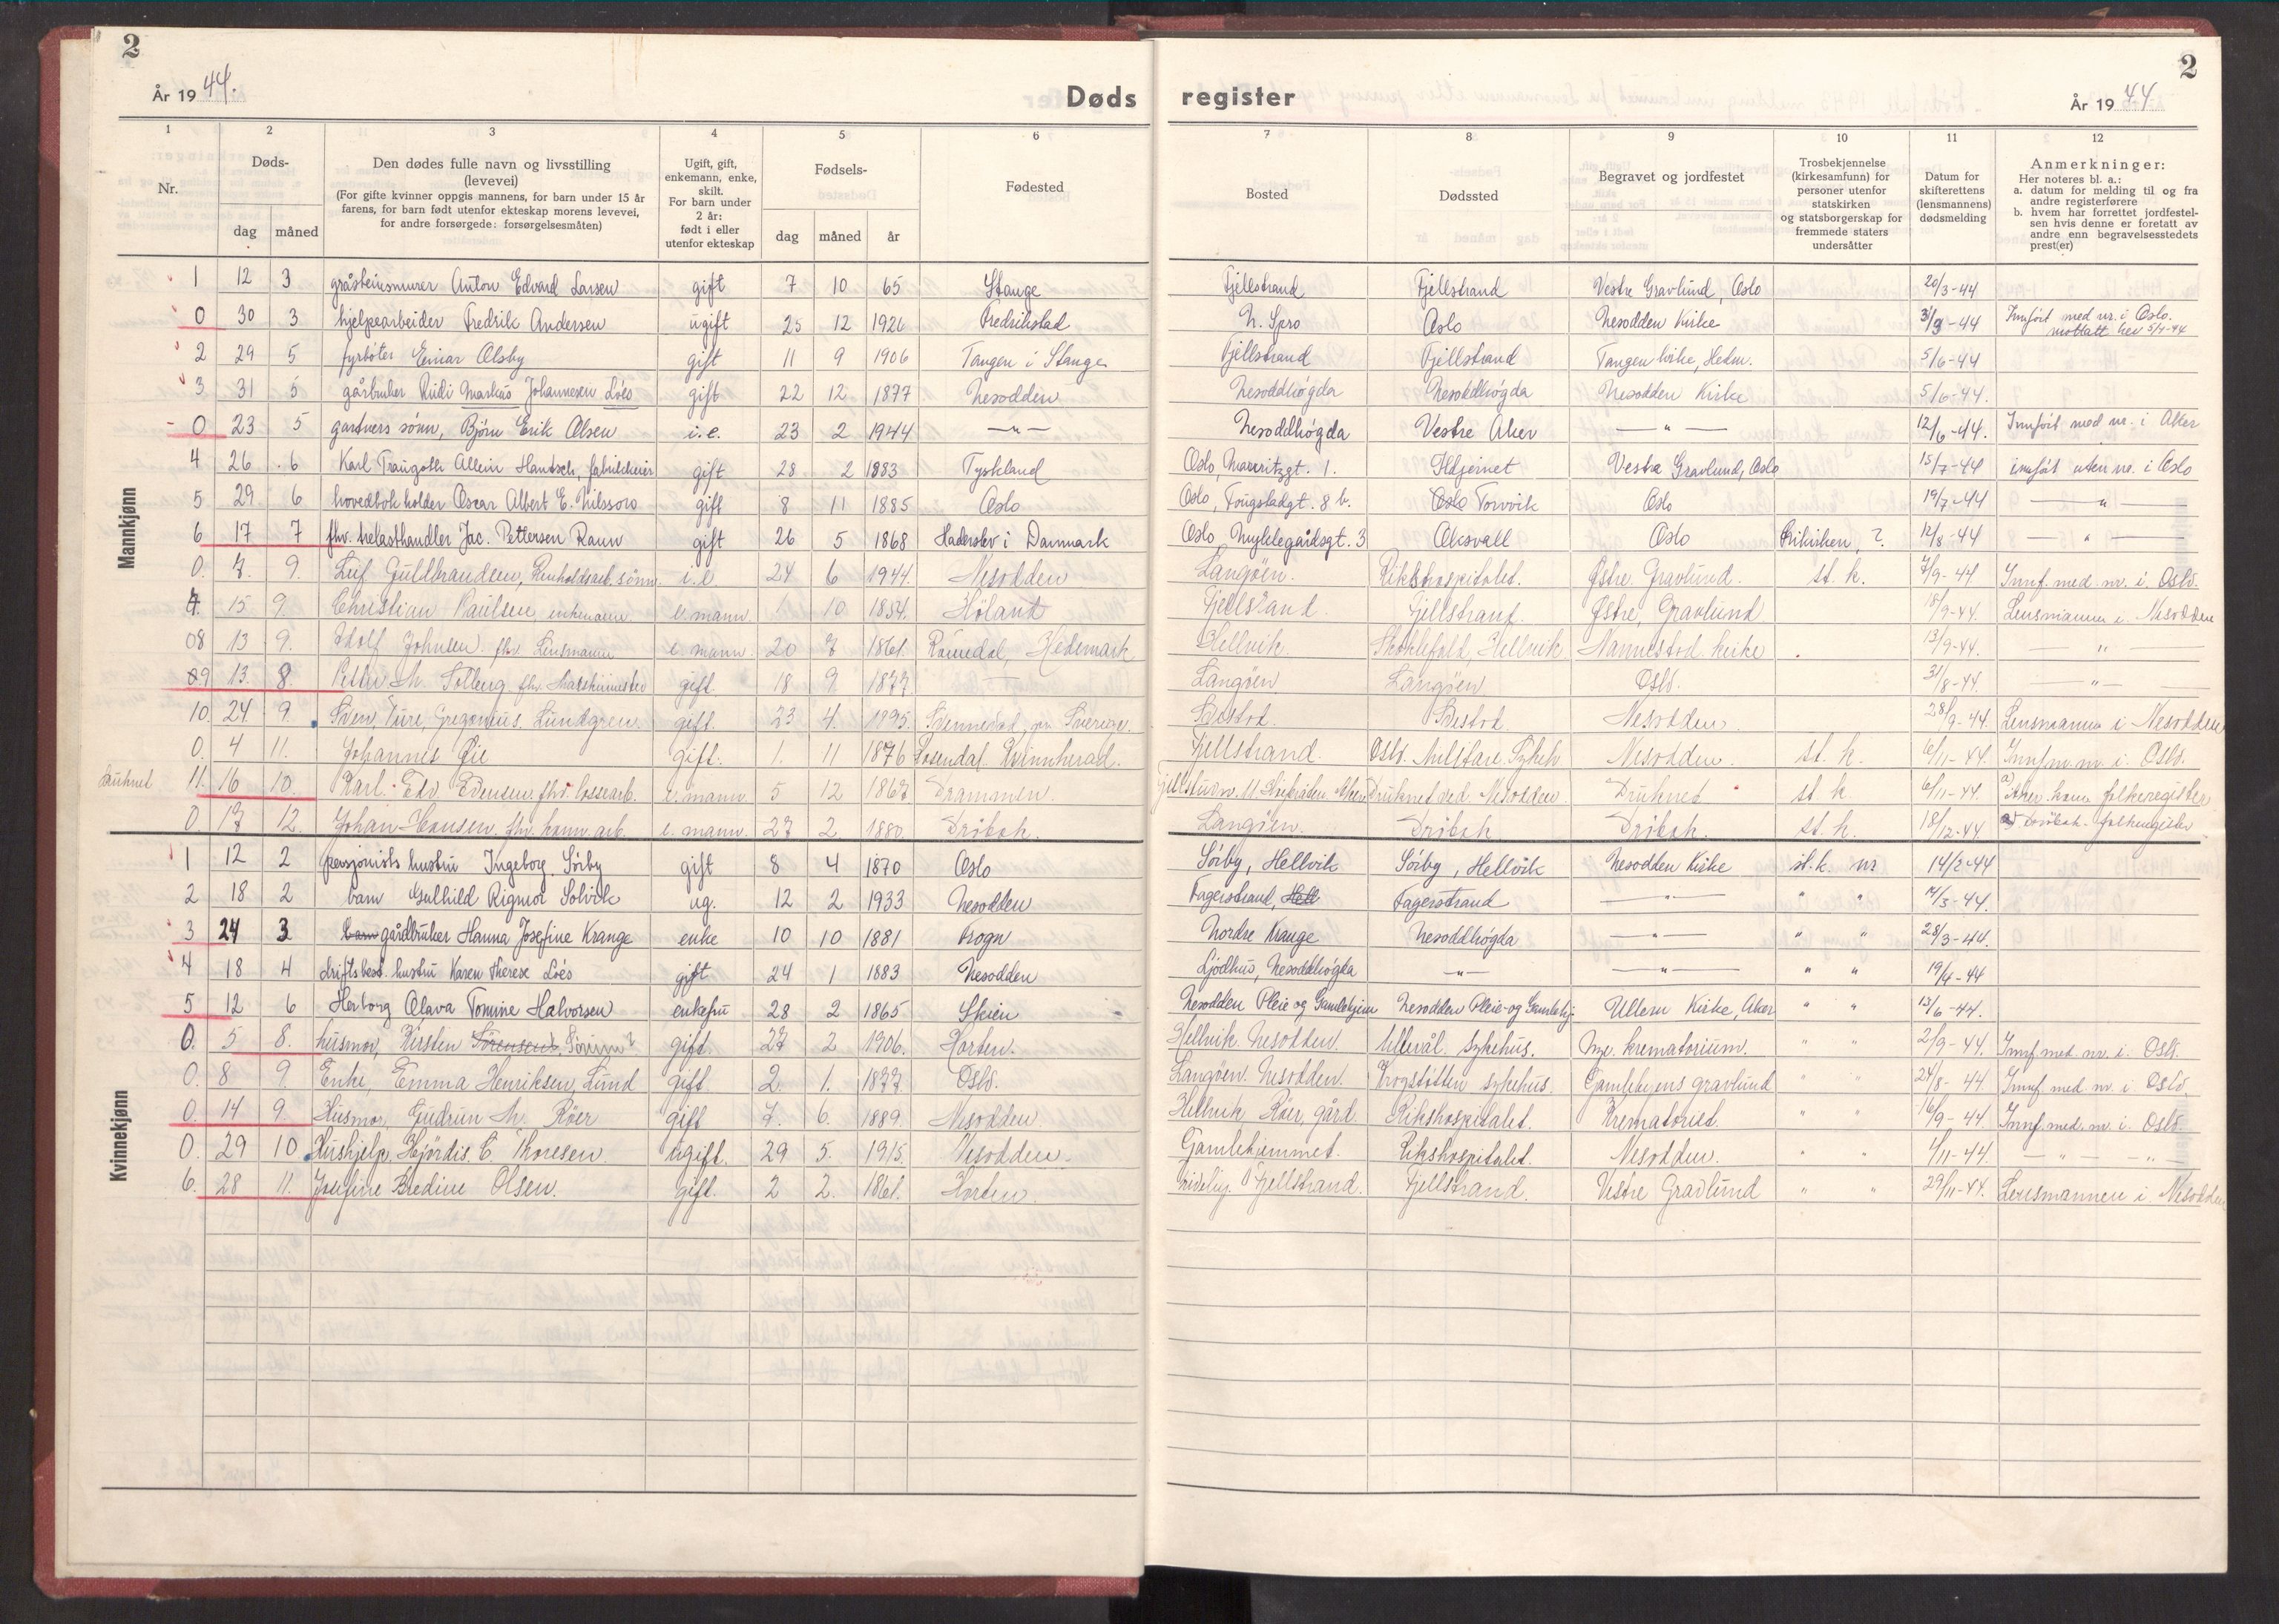 2
År 1944.
Døds
register
År 1944
2
1 2 3 4 5 6 7 8 9 10 11 12
Nr.
Døds-
dag måned
Den dødes fulle navn og livsstilling
(levevei)
(For gifte kvinner oppgis mannens, for barn under 15 år
farens, for barn født utenfor ekteskap morens levevei,
for andre forsørgede: forsørgelsesmåten)
Ugift, gift,
enkemann, enke,
skilt.
For barn under
2 år:
født i eller
utenfor ekteskap
Fødsels-
dag måned år
Fødested
Bosted
Dødssted
Begravet og jordfestet
Trosbekjennelse
(kirkesamfunn) for
personer utenfor
statskirken
og statsborgerskap for
fremmede staters
undersåtter
Datum for
skifterettens
(lensmannens)
dødsmelding
Anmerkninger:
Her noteres bl. a.:
a. datum for melding til og fra
andre registerførere
b. hvem har forrettet jordfestel-
sen hvis denne er foretatt av
andre enn begravelsesstedets
prest(er)
Mannkjønn
1 12 3 gråsteinsmurer Anton Edvard Larsen gift 7 10 65 Stange Fjellstrand Fjellstrand Vestre Gravlund, Oslo 20/3-44
0 30 3 hjelpearbeider Fredrik Andersen ugift 25 12 1926 Fredrikstad N. Spro Oslo Nesodden Kirke 31/3-44 Innført med nr. i Oslo.
mottatt her 5/4-44
2 29 5 fyrbøter Einar Olsby gift 11 9 1906 Tangen i Stange Fjellstrand Fjellstrand Tangen kirke, Hedm. 5/6-44
3 31 5 gårbruker Rudi Markus Johannesen Löes gift 22 12 1877 Nesodden Nesoddhøgda Nesoddhøgda Nesodden Kirke 5/6-44.
0 23 5 gartners sønn, Bjørn Erik Olsen i.e. 23 2 1944 —"— Nesoddhøgda Vestre Aker —"— 12/6-44. Innført med nr. i Aker
4 26 6 Karl Traugoth Allein Hantsch, fabrikkeier gift 28 2 1883 Tyskland Oslo, 1. Hjemmet Vestre Gravlund, Oslo 15/7-44 innført uten nr. i Oslo
5 29 6 hovedbokholder Oscar Albert E. Nilsson gift 8 11 1885 Oslo Oslo, Fougstadgt. 8 b. Oslo Torvvik Oslo 19/7-44 —"—
6 17 7 fhv. trelasthandler Jac. Pettersen Raun gift 26 5 1868 Haderslev i Danmark Oslo Nyklegårdsgt. 3 Oksvall Oslo Frikirken, ? 12/8-44 —"—
0. 7. 9. Leif Gulbrandsen, Renholdsarb. sønn. i.e. 24 6 1944. Nesodden Langøen. Rikshospitalet. Østre Gravlund. st. k. 7/9-44 Innf. med. nr. i. Oslo.
7. 15 9. Christian Paulsen, enkemann e. mann. 1 10 1854. Høland Fjellstrand. Fjellstrand. Østre, Gravlund 18/9-44. Lensmannen i. Nesodden
08 13 9. Adolf Johnsen. fhv. Lensmann e. mann. 20 7 1861. Romedal, Hedemark Hellvik. Skoklefald, Hellvik Nannestad. kirke 13/9-44. —"—
09 13. 8. Petter M. Solberg fhv. Maskinmester gift. 18 9. 1877. — Langøen Langøen. Oslo. 31/8-44. —"—
10. 24. 9. Sven Ture, Gregorius. Lundgren. gift. 23 4. 1895. Sverige. Nesodden. 28/9-44. Lensmannen i Nesodden
0. 4 11. Johannes Øie gift. 1. 11 1876 Rosendal. Kvinnherad. Fjellstrand. Oslo. Militære. Sykeh Nesodden. st. k. 6/11-44. Innf m. nr. i. Oslo.
Druknet 11. 16 10. Karl. Edv Edensen fhv. lossearb. e. mann 5 12 1867 Drammen. Druknet ved Nesodden. Druknet st k. 6/11-44. a) Aker. kom folkeregister
0. 17 12. Johan Hansen. fhv. kom. arb. e. mann. 27 2. 1880. Drøbak. Langøen. Drøbak Drøbak. st. k. 18/12-44 a) Drøbak folkeregister
Kvinnekjønn
1 12 2 pensjonists hustru Ingeborg. Sörby gift 8 4 1870 Oslo Sörby, Hellvik Sörby, Hellvik Nesodden Kirke st. k. 14/2-44
2 18 2 barn Gulhild Rigmor Solvik ug. 12 2 1933 Nesodden Fagerstrand, Hell Fagerstrand —"— " " 14/3-44.
3 24 3 barn gårdbruker Hanna Josefine Krange enke 10 10 1881 Frogn Nordre Krange Nesoddhøgda —"— " " 28/3-44.
4 18 4 driftsbest. hustru Karen Therese Löes gift 24 1 1883 Nesodden Ljödhus, Nesoddhøgda —"— —"— " " 19/4-44
5 12 6 Herborg Olava Tomine Halvorsen enkefru 28 2 1865 Skien Nesodden Pleie og Gamlehjem Nesodden Pleie og Gamlehj. Ullern Kirke, Aker " " 13/6-44.
0. 5 8. husmor, Kirsten Sörensen gift 27 2 1906. Horten. Hellvik Nesodden. Ullevål Sykehus. Nye krematorium. " " 2/9-44. Innf. med nr. i. Oslo.
0. 8 9. Enke, Emma Henriksen, Lund gift 2. 1. 1877. Oslo. Langøen. Nesodden. Krogstøtten sykehus. Gamlebyens gravlund " " 24/8-44 Innf med nr. i Oslo.
0. 14 9. Husmor, Gudrun M. Röer gift 7. 6. 1889. Nesodden. Hellvik, Röer gård. Rikshospitalet. Krematoriet. " " 16/9-44. Innf. med. nr. i. Oslo.
0. 29 10 Hushjelp, Hjördis. C Thoresen. ugift. 29 5. 1915. Nesodden. Gamlehjemmet. Rikshospitalet. Nesodden. " " 1/11-44. —"— —"—
6. 28 11. Josefine Bredine Olsen. gift. 2 2. 1861. Horten. Fjellstrand. Fjellstrand. Vestre Gravlund " " 29/11-44. Lensmannen i. Nesodden